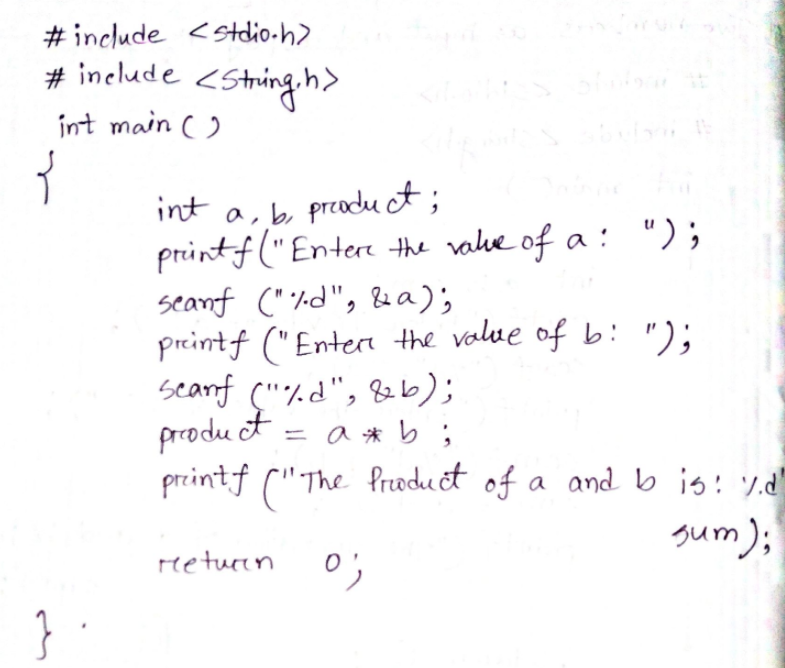 # include <stdio.h>
# include <String.h>
int main ( )
{
int a, b, product ;
printf ("Enter the value of a : ");
scanf ("%d", &a);
printf ("Enter the value of b : ");
scanf ("%d", &b);
product = a * b ;
printf ("The Product of a and b is : %d"
sum);
return 0;
}